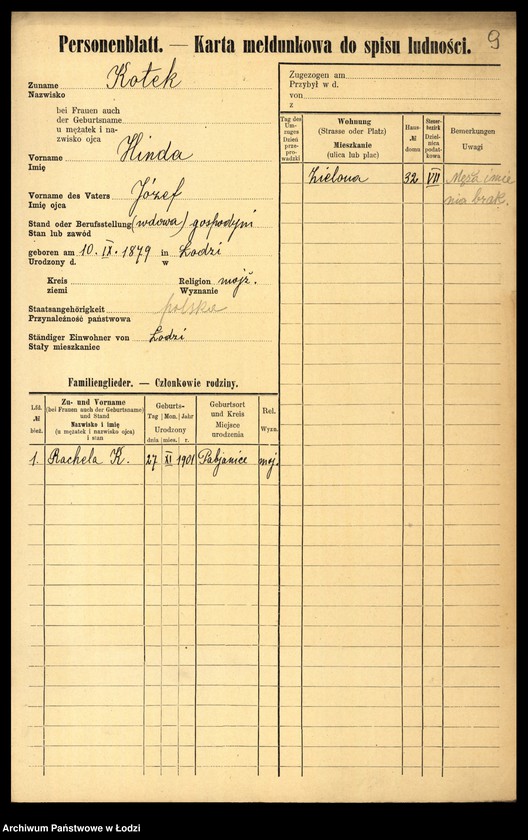 9
Personenblatt. — Karta meldunkowa do spisu ludności.
Zuname
Nazwisko
Kotek
bei Frauen auch
der Geburtsname
u mężatek i na-
zwisko ojca
Vorname
Imię
Hinda
Vorname des Vaters
Imię ojca
Józef
Stand oder Berufsstellung (wdowa) gospodyni
Stan lub zawód
geboren am 10. IX. 1879 in Łodzi
Urodzony d. w
Kreis Religion mojż.
ziemi Wyznanie
Staatsangehörigkeit polska
Przynależność państwowa
Ständiger Einwohner von Łodzi
Stały mieszkaniec
Familienglieder. — Członkowie rodziny.
Lfd.
№
bież.
Zu- und Vorname
(bei Frauen auch der Geburtsname)
und Stand
Nazwisko i imię
(u mężatek i nazwisko ojca)
i stan
Geburts-
Tag Mon. Jahr
Urodzony
dnia mies. r.
Geburtsort
und Kreis
Miejsce
urodzenia
Rel.
Wyzn.
1. Rachela K. 27 XI 1901 Pabjanice moj.
Zugezogen am
Przybył w d.
von
z
Tag des
Um-
zuges
Dzień
prze-
pro-
wadzki
Wohnung
(Strasse oder Platz)
Mieszkanie
(ulica lub plac)
Haus-
№
domu
Steuer-
bezirk
Dziel-
nica
podat-
kowa
Bemerkungen
Uwagi
Zielona 32 VII Męża imie
nia brak.
Archiwum Państwowe w Łodzi